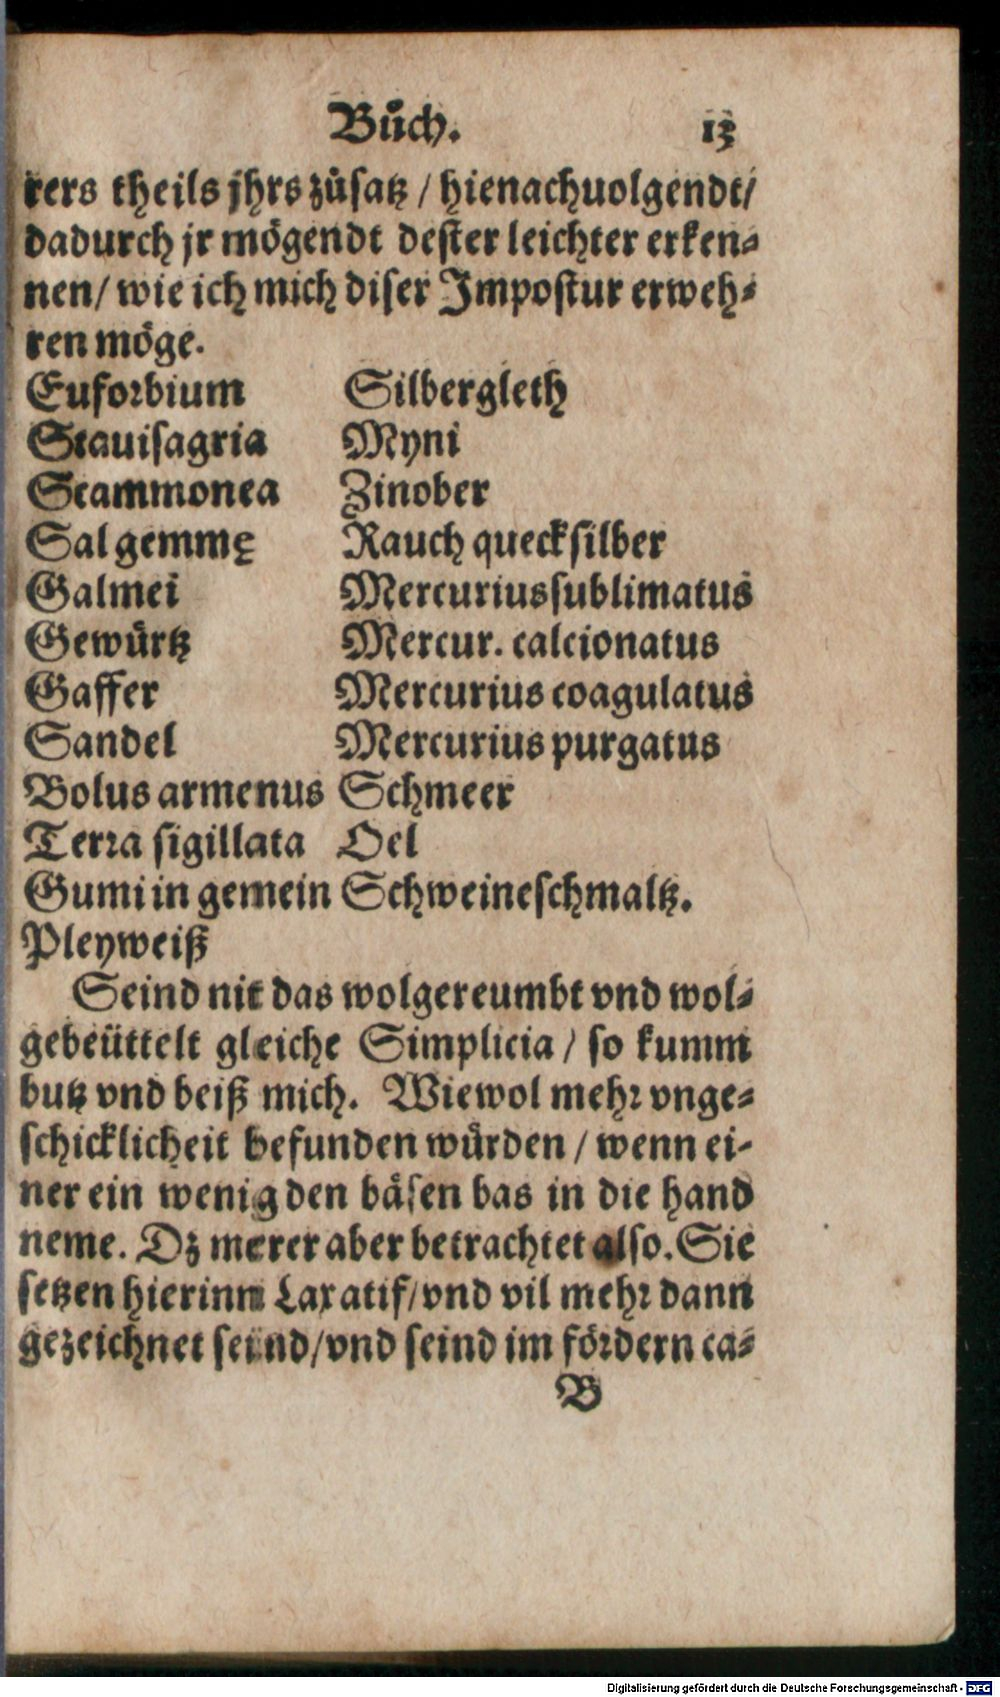 Bůch. 13
rers theils jhrs zůsatz / hienachuolgendt/
dadurch jr mögendt dester leichter erken⸗
nen/ wie ich mich diser Impostur erweh⸗
ren möge.
Euforbium Silbergleth
Stauisagria Myni
Scammonea Zinober
Sal gemmę Rauch quecksilber
Galmei Mercurius sublimatus
Gewürtz Mercur. calcionatus
Gaffer Mercurius coagulatus
Sandel Mercurius purgatus
Bolus armenus Schmeer
Terra sigillata Oel
Gumi in gemein Schweineschmaltz.
Pleyweiß
Seind nit das wolgereumbt vnd wol⸗
gebeüttelt gleiche Simplicia / so kumm
butz vnd beiß mich. Wiewol mehr vnge⸗
schicklicheit befunden würden / wenn ei-
ner ein wenig den bäsen bas in die hand
neme. Dz merer aber betrachtet also. Sie
setzen hierinn Laxatif/ vnd vil mehr dann
gezeichnet seind/ vnd seind im fördern ca⸗
B
Digitalisierung gefördert durch die Deutsche Forschungsgemeinschaft - DFG